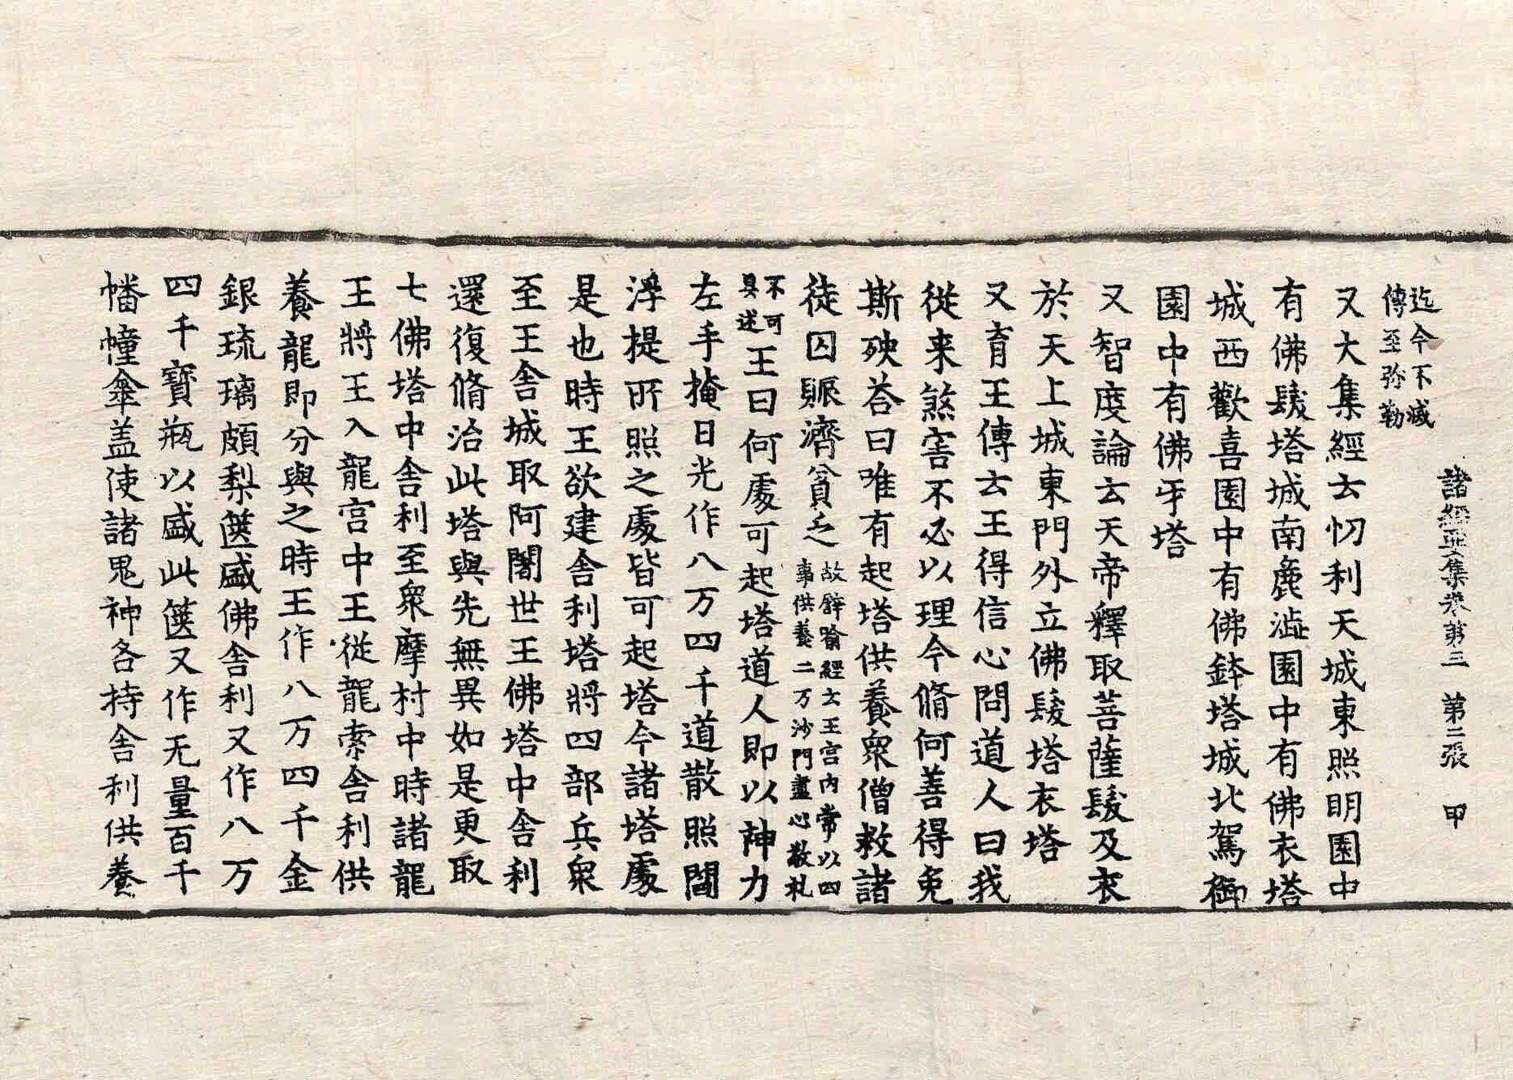 諸經要集卷第三　第二張　甲
迄今不滅
傳至弥勒
又大集經云忉利天城東照明園中
有佛髮塔城南麁澁園中有佛衣塔
城西歡喜園中有佛鉢塔城北駕御
園中有佛牙塔
又智度論云天帝釋取菩薩髮及衣
於天上城東門外立佛髮塔衣塔
又育王傳云王得信心問道人曰我
從来煞害不必以理今脩何善得免
斯殃荅曰唯有起塔供養衆僧救諸
徒囚賑濟貧乏故辟喻經云王宫内常以四
事供養二万沙門盡心敬礼
不可
具述王曰何處可起塔道人即以神力
左手掩日光作八万四千道散照閻
浮提所照之處皆可起塔今諸塔處
是也時王欲建舎利塔將四部兵衆
至王舎城取阿闍世王佛塔中舎利
還復脩治此塔與先無異如是更取
七佛塔中舎利至衆摩村中時諸龍
王將王入龍宫中王從龍索舎利供
養龍即分與之時王作八万四千金
銀琉璃頗梨篋盛佛舎利又作八万
四千寶瓶以盛此篋又作无量百千
幡幢傘盖使諸鬼神各持舎利供養